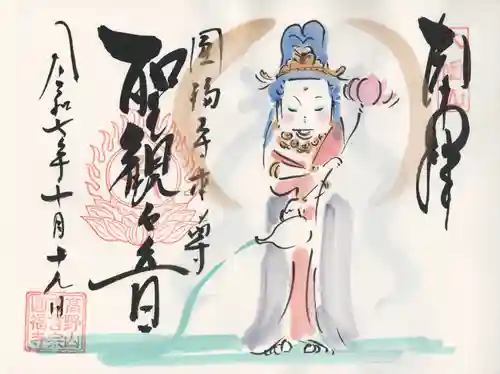 奉拝
圓福寺本尊
聖観世音
令和七年十月十九日
高野山
真言宗
圓福寺